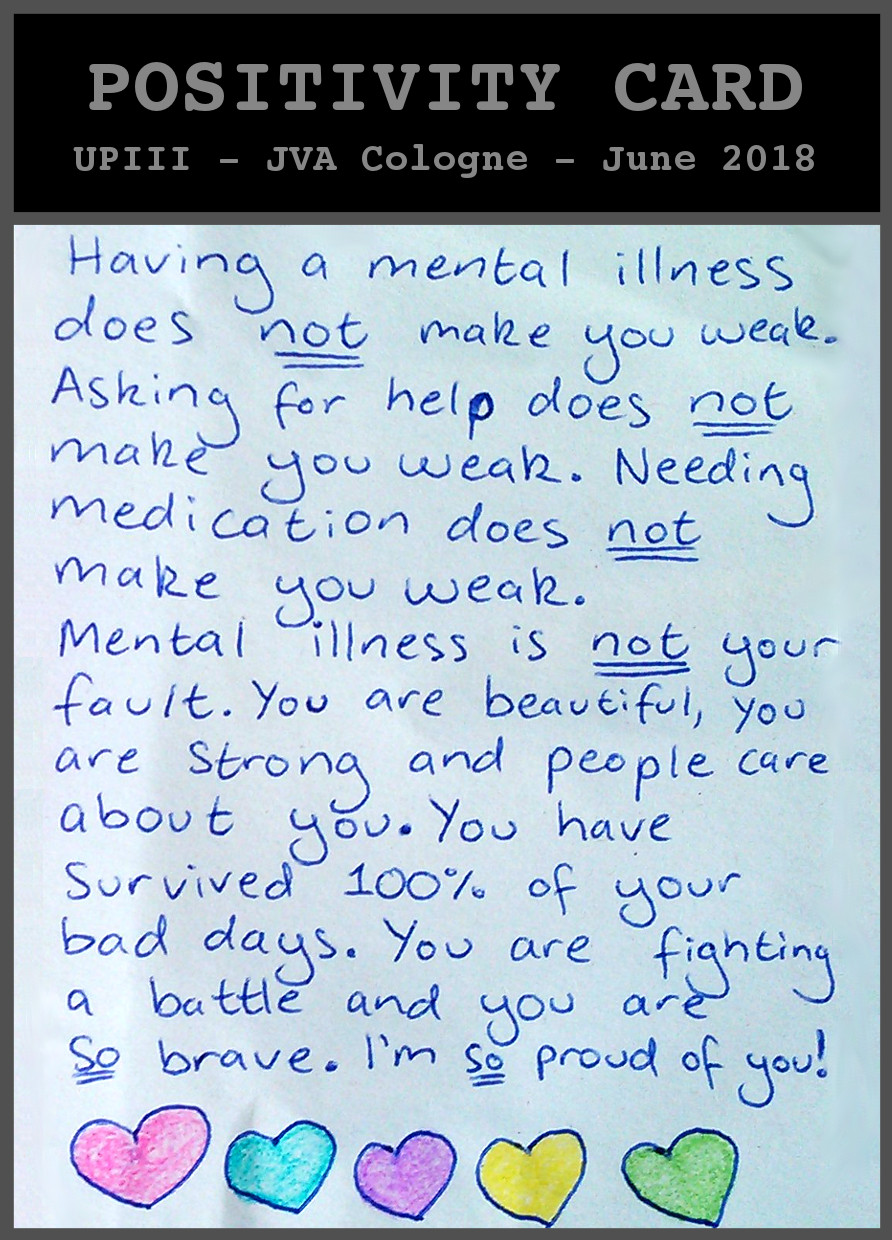 POSITIVITY CARD
UPIII - JVA Cologne - June 2018
Having a mental illness
does not make you weak.
Asking for help does not
make you weak. Needing
medication does not
make you weak.
Mental illness is not your
fault. You are beautiful, you
are strong and people care
about you. You have
Survived 100% of your
bad days. You are fighting
a battle and you are
So brave. I'm so proud of you!